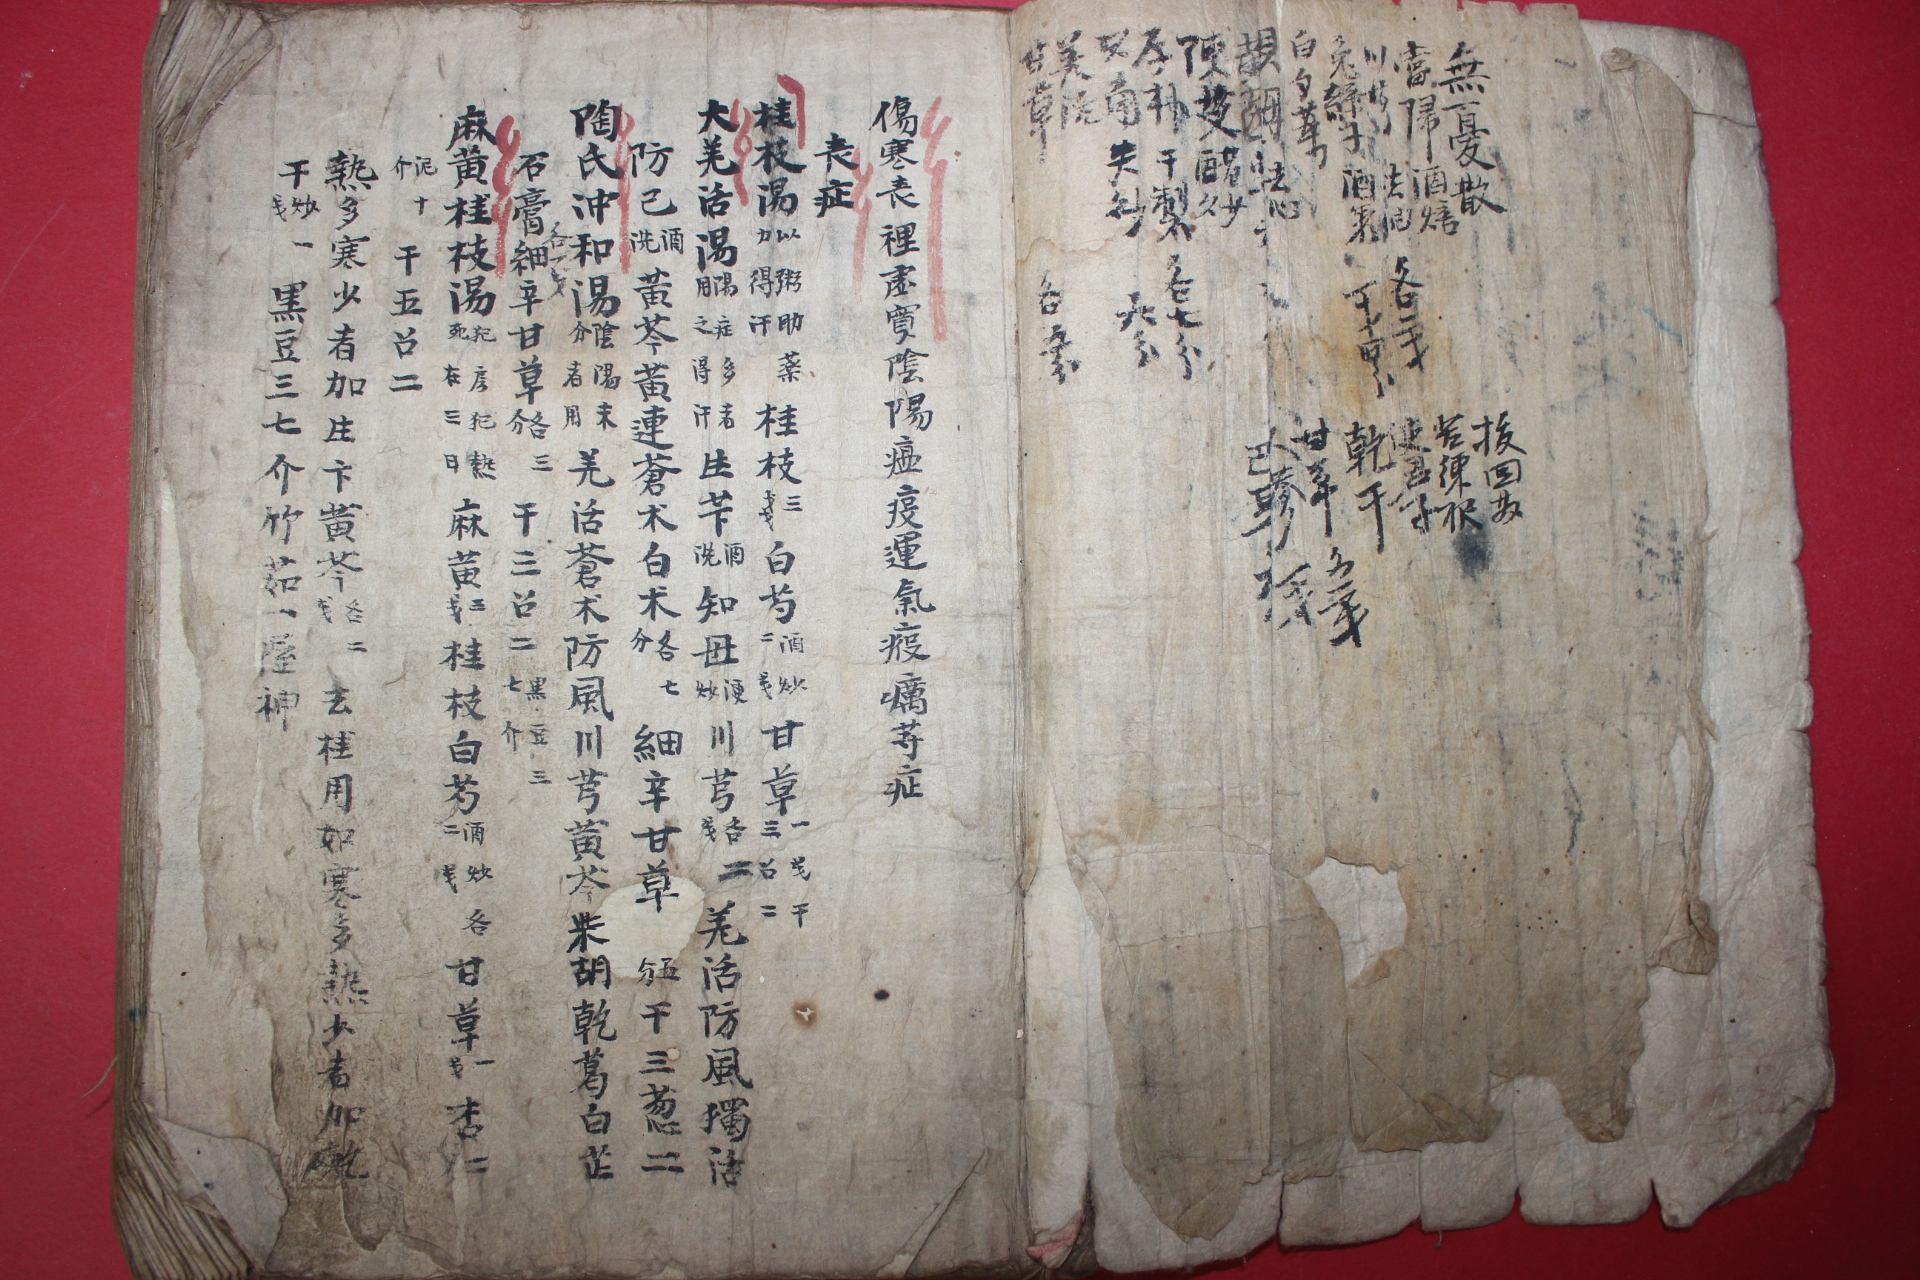 無憂散
當歸 酒焙 各二戋
川芎 去油
兔絲子 酒製
白勺藥
陳芰 醋炒
厚朴 干製 各七分
艾 六分
羌活
甘草 各五分
苦練根
使君子
乾干
甘草 各一戋
傷寒表裡虛實陰陽瘟疫運氣疫癘等症
表症
桂枝湯 以粥助藥力得汗 桂枝三戋 白芍酒炒二戋 甘草一戋 干三召二
大羌活湯 陽症多者用之得汗 生芐酒洗 知毋便炒 川芎各二戋 羌活防風獨活
防己酒洗 黃芩黃連蒼朮白朮各七分 細辛甘草五分 干三葱二
陶氏冲和湯 陰陽未分者用 羌活蒼朮防風川芎黃芩柴胡乾葛白芷
石膏細辛甘草各三分 干三召二 黑豆三七介
麻黃桂枝湯 犯房犯熱死在三日 麻黃三戋 桂枝白芍酒炒二戋 各甘草一戋 杏仁
泥十介 干五召二
熱多寒少者加生卞黃芩各二戋 去桂用如寒多熱少者加乾
干炒戋一黑豆三七介竹茹一